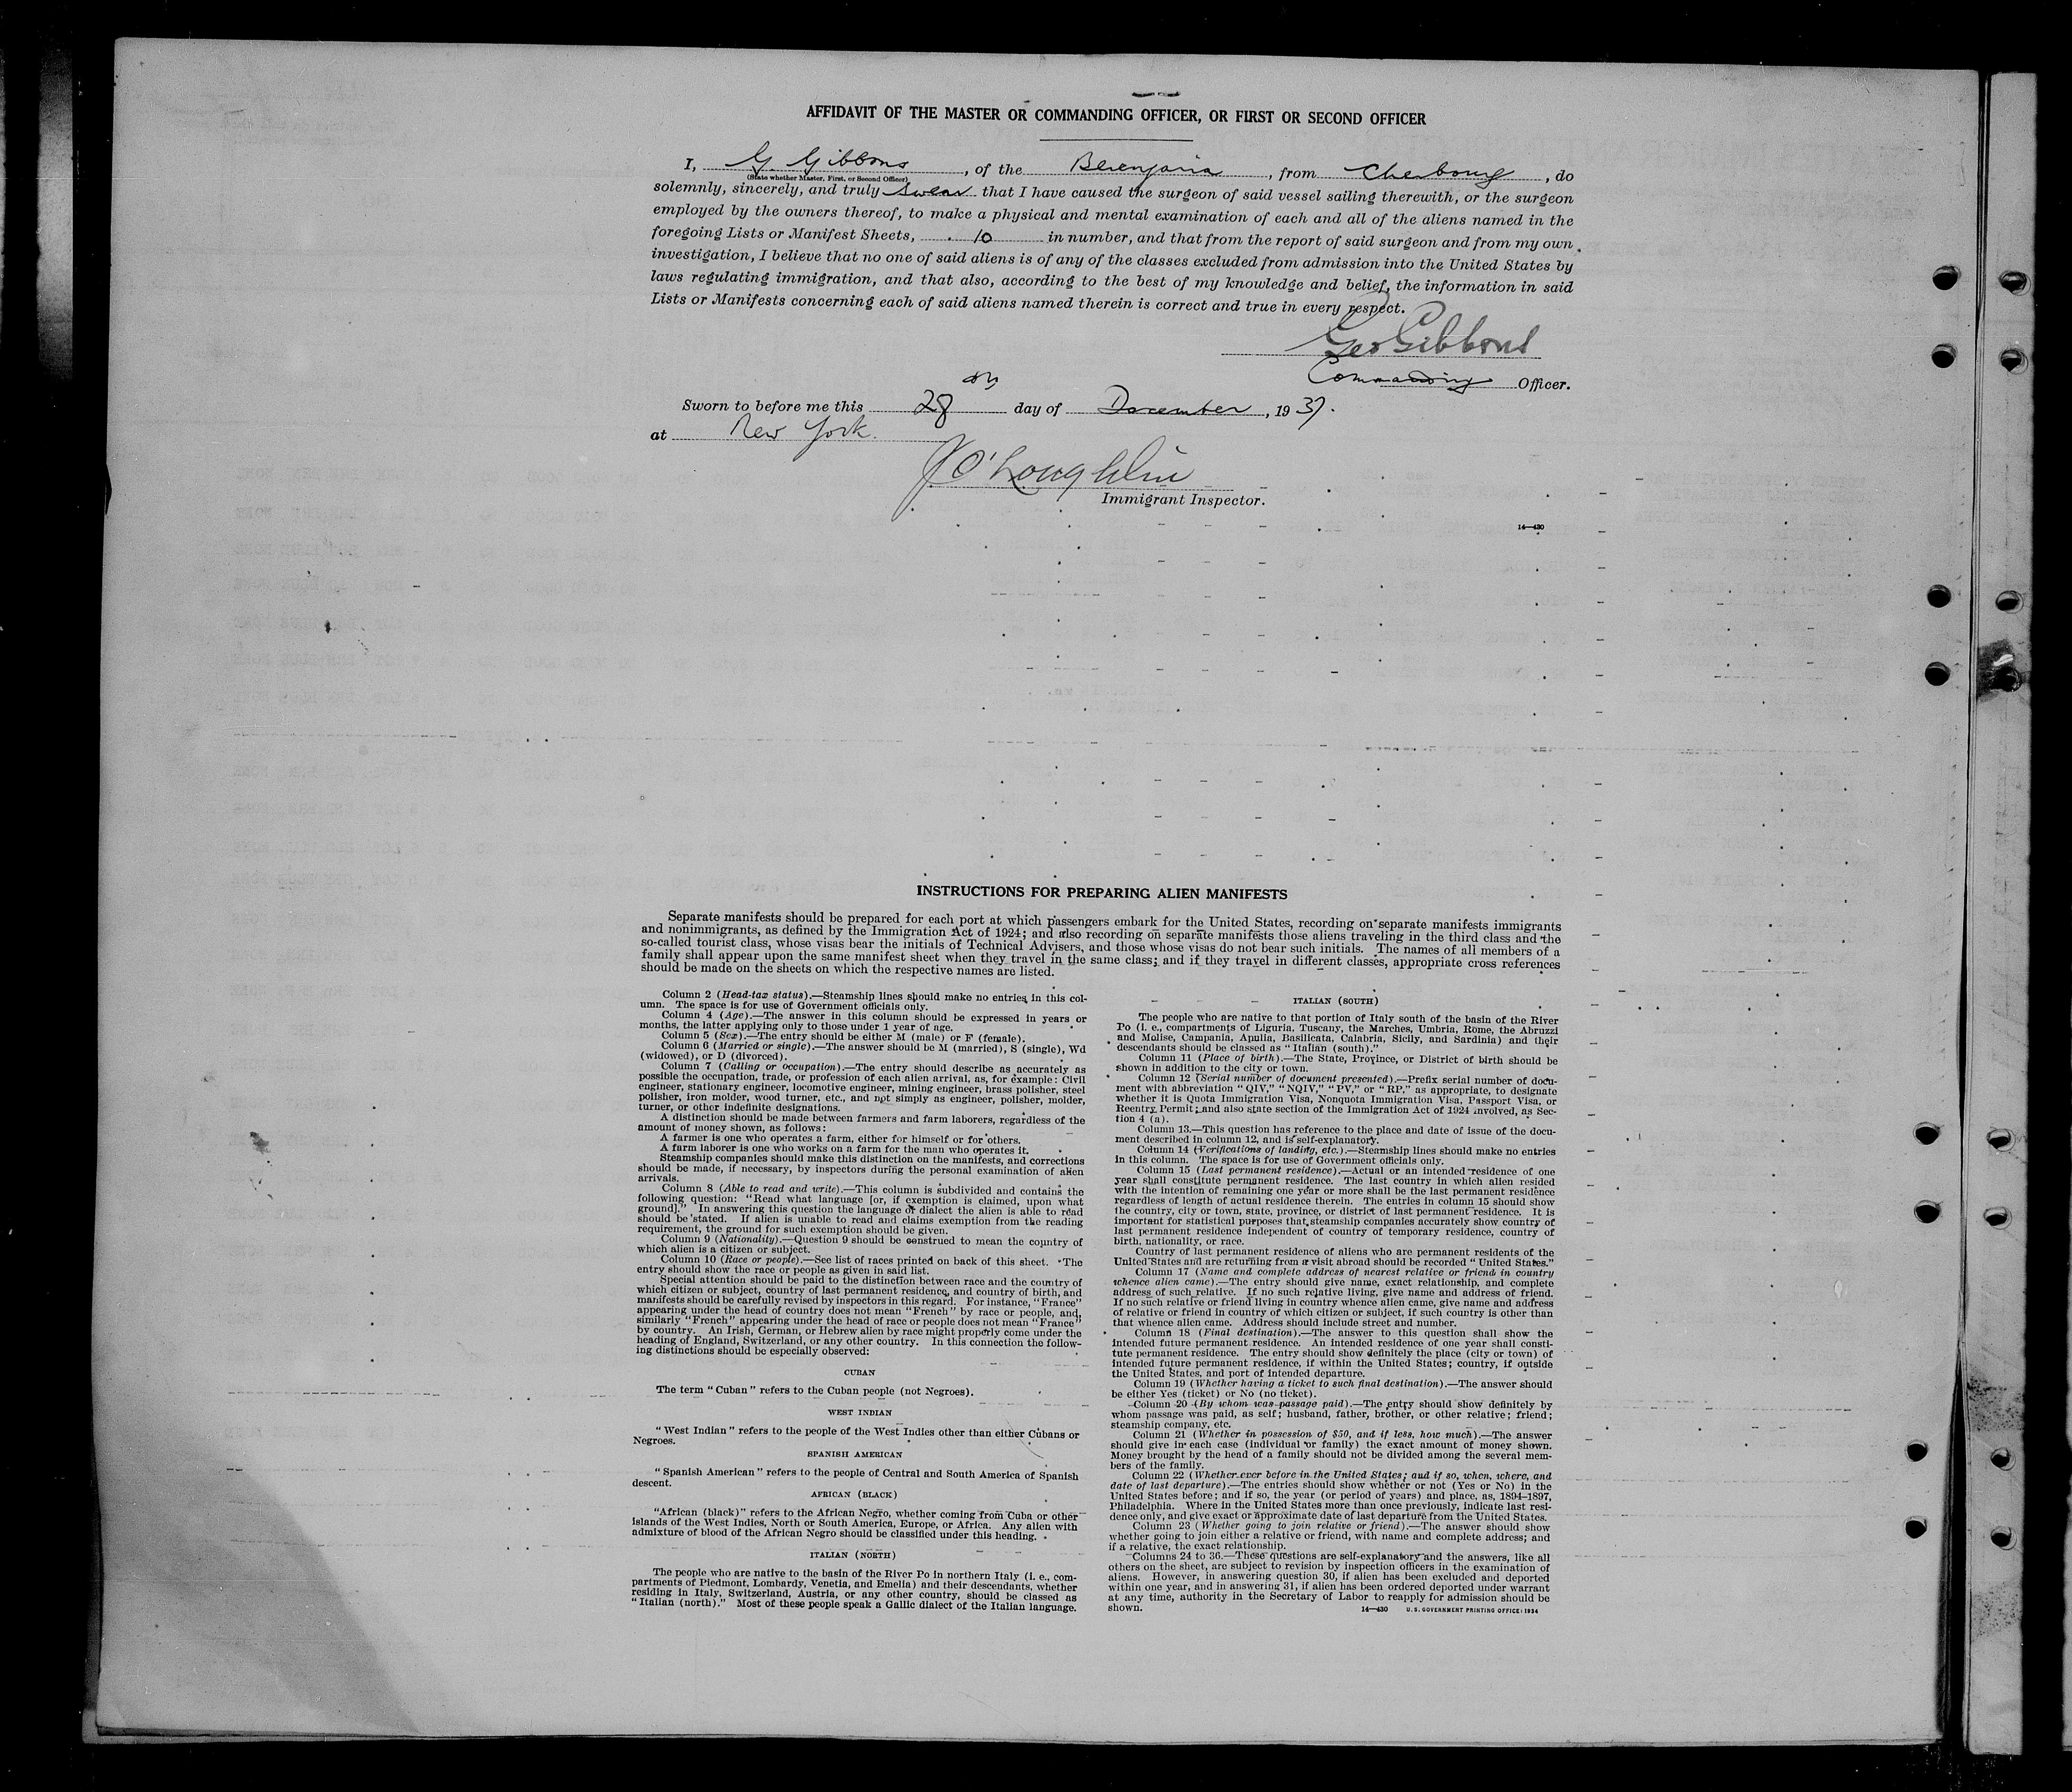 AFFIDAVIT OF THE MASTER OR COMMANDING OFFICER, OR FIRST OR SECOND OFFICER
I, G. Gibbons, of the Berengaria, from Cherbourg, do
(State whether Master, First, or Second Officer)
solemnly, sincerely, and truly swear that I have caused the surgeon of said vessel sailing therewith, or the surgeon
employed by the owners thereof, to make a physical and mental examination of each and all of the aliens named in the
foregoing Lists or Manifest Sheets, 10 in number, and that from the report of said surgeon and from my own
investigation, I believe that no one of said aliens is of any of the classes excluded from admission into the United States by
laws regulating immigration, and that also, according to the best of my knowledge and belief, the information in said
Lists or Manifests concerning each of said aliens named therein is correct and true in every respect.
Geo Gibbons
Commanding Officer.
Sworn to before me this 28th day of December, 1937.
at New York.
J O'Loughlin
Immigrant Inspector.
14—430
INSTRUCTIONS FOR PREPARING ALIEN MANIFESTS
Separate manifests should be prepared for each port at which passengers embark for the United States, recording on separate manifests immigrants
and nonimmigrants, as defined by the Immigration Act of 1924; and also recording on separate manifests those aliens traveling in the third class and the
so-called tourist class, whose visas bear the initials of Technical Advisers, and those whose visas do not bear such initials. The names of all members of a
family shall appear upon the same manifest sheet when they travel in the same class; and if they travel in different classes, appropriate cross references
should be made on the sheets on which the respective names are listed.
Column 2 (Head-tax status).—Steamship lines should make no entries in this col-
umn. The space is for use of Government officials only.
Column 4 (Age).—The answer in this column should be expressed in years or
months, the latter applying only to those under 1 year of age.
Column 5 (Sex).—The entry should be either M (male) or F (female).
Column 6 (Married or single).—The answer should be M (married), S (single), Wd
(widowed), or D (divorced).
Column 7 (Calling or occupation).—The entry should describe as accurately as
possible the occupation, trade, or profession of each alien arrival, as, for example: Civil
engineer, stationary engineer, locomotive engineer, mining engineer, brass polisher, steel
polisher, iron molder, wood turner, etc., and not simply as engineer, polisher, molder,
turner, or other indefinite designations.
A distinction should be made between farmers and farm laborers, regardless of the
amount of money shown, as follows:
A farmer is one who operates a farm, either for himself or for others.
A farm laborer is one who works on a farm for the man who operates it.
Steamship companies should make this distinction on the manifests, and corrections
should be made, if necessary, by inspectors during the personal examination of alien
arrivals.
Column 8 (Able to read and write).—This column is subdivided and contains the
following question: "Read what language [or, if exemption is claimed, upon what
ground]." In answering this question the language or dialect the alien is able to read
should be stated. If alien is unable to read and claims exemption from the reading
requirement, the ground for such exemption should be given.
Column 9 (Nationality).—Question 9 should be construed to mean the country of
which alien is a citizen or subject.
Column 10 (Race or people).—See list of races printed on back of this sheet. The
entry should show the race or people as given in said list.
Special attention should be paid to the distinction between race and the country of
which citizen or subject, country of last permanent residence, and country of birth, and
manifests should be carefully revised by inspectors in this regard. For instance, "France"
appearing under the head of country does not mean "French" by race or people, and,
similarly "French" appearing under the head of race or people does not mean "France"
by country. An Irish, German, or Hebrew alien by race might properly come under the
heading of England, Switzerland, or any other country. In this connection the follow-
ing distinctions should be especially observed:
CUBAN
The term "Cuban" refers to the Cuban people (not Negroes).
WEST INDIAN
"West Indian" refers to the people of the West Indies other than either Cubans or
Negroes.
SPANISH AMERICAN
"Spanish American" refers to the people of Central and South America of Spanish
descent.
AFRICAN (BLACK)
"African (black)" refers to the African Negro, whether coming from Cuba or other
islands of the West Indies, North or South America, Europe, or Africa. Any alien with
admixture of blood of the African Negro should be classified under this heading.
ITALIAN (NORTH)
The people who are native to the basin of the River Po in northern Italy (i. e., com-
partments of Piedmont, Lombardy, Venetia, and Emelia) and their descendants, whether
residing in Italy, Switzerland, Austria, or any other country, should be classed as
"Italian (north)." Most of these people speak a Gallic dialect of the Italian language.
ITALIAN (SOUTH)
The people who are native to that portion of Italy south of the basin of the River
Po (i. e., compartments of Liguria, Tuscany, the Marches, Umbria, Rome, the Abruzzi
and Molise, Campania, Apulia, Basilicata, Calabria, Sicily, and Sardinia) and their
descendants should be classed as "Italian (south)."
Column 11 (Place of birth).—The State, Province, or District of birth should be
shown in addition to the city or town.
Column 12 (Serial number of document presented).—Prefix serial number of docu-
ment with abbreviation "QIV," "NQIV," "PV," or "RP," as appropriate, to designate
whether it is Quota Immigration Visa, Nonquota Immigration Visa, Passport Visa, or
Reentry Permit; and also state section of the Immigration Act of 1924 involved, as Sec-
tion 4 (a).
Column 13.—This question has reference to the place and date of issue of the docu-
ment described in column 12, and is self-explanatory.
Column 14 (Verifications of landing, etc.).—Steamship lines should make no entries
in this column. The space is for use of Government officials only.
Column 15 (Last permanent residence).—Actual or an intended residence of one
year shall constitute permanent residence. The last country in which alien resided
with the intention of remaining one year or more shall be the last permanent residence
regardless of length of actual residence therein. The entries in column 15 should show
the country, city or town, state, province, or district of last permanent residence. It is
important for statistical purposes that steamship companies accurately show country of
last permanent residence independent of country of temporary residence, country of
birth, nationality, or race.
Country of last permanent residence of aliens who are permanent residents of the
United States and are returning from a visit abroad should be recorded "United States."
Column 17 (Name and complete address of nearest relative or friend in country
whence alien came).—The entry should give name, exact relationship, and complete
address of such relative. If no such relative living, give name and address of friend.
If no such relative or friend living in country whence alien came, give name and address
of relative or friend in country of which citizen or subject, if such country is other than
that whence alien came. Address should include street and number.
Column 18 (Final destination).—The answer to this question shall show the
intended future permanent residence. An intended residence of one year shall consti-
tute permanent residence. The entry should show definitely the place (city or town) of
intended future permanent residence, if within the United States; country, if outside
the United States, and port of intended departure.
Column 19 (Whether having a ticket to such final destination).—The answer should
be either Yes (ticket) or No (no ticket).
Column 20 (By whom was passage paid).—The entry should show definitely by
whom passage was paid, as self; husband, father, brother, or other relative; friend;
steamship company, etc.
Column 21 (Whether in possession of $50, and if less, how much).—The answer
should give in each case (individual or family) the exact amount of money shown.
Money brought by the head of a family should not be divided among the several mem-
bers of the family.
Column 22 (Whether ever before in the United States; and if so, when, where, and
date of last departure).—The entries should show whether or not (Yes or No) in the
United States before; and if so, the year (or period of years) and place, as, 1894–1897,
Philadelphia. Where in the United States more than once previously, indicate last resi-
dence only, and give exact or approximate date of last departure from the United States.
Column 23 (Whether going to join relative or friend).—The answer should show
whether going to join either a relative or friend, with name and complete address; and
if a relative, the exact relationship.
Columns 24 to 36.—These questions are self-explanatory and the answers, like all
others on the sheet, are subject to revision by inspection officers in the examination of
aliens. However, in answering question 30, if alien has been excluded and deported
within one year, and in answering 31, if alien has been ordered deported under warrant
at any time, authority in the Secretary of Labor to reapply for admission should be
shown.
14—430 U. S. GOVERNMENT PRINTING OFFICE: 1934